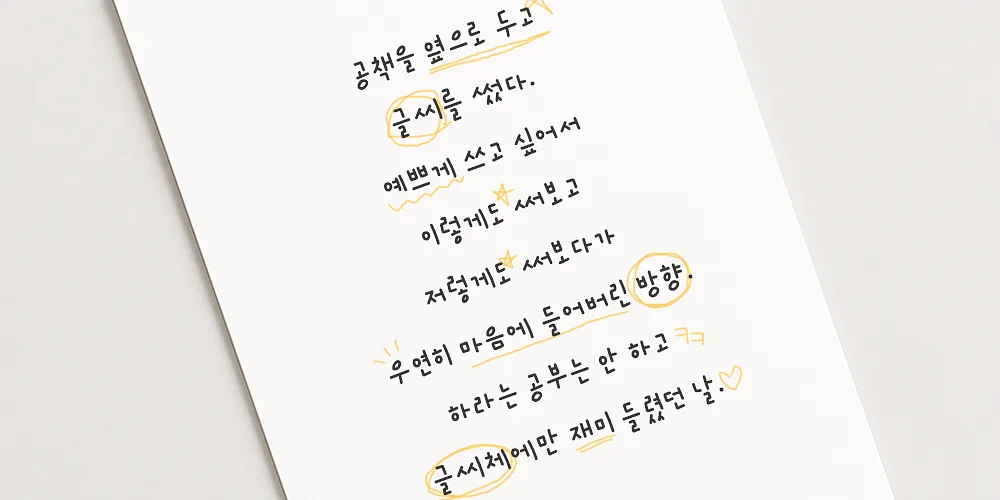 공책을 옆으로 두고
글씨를 썼다.
예쁘게 쓰고 싶어서
이렇게도 써보고
저렇게도 써보다가
우연히 마음에 들어버린 방향.
하라는 공부는 안 하고 ㅋㅋ
글씨체에만 재미 들렸던 날.